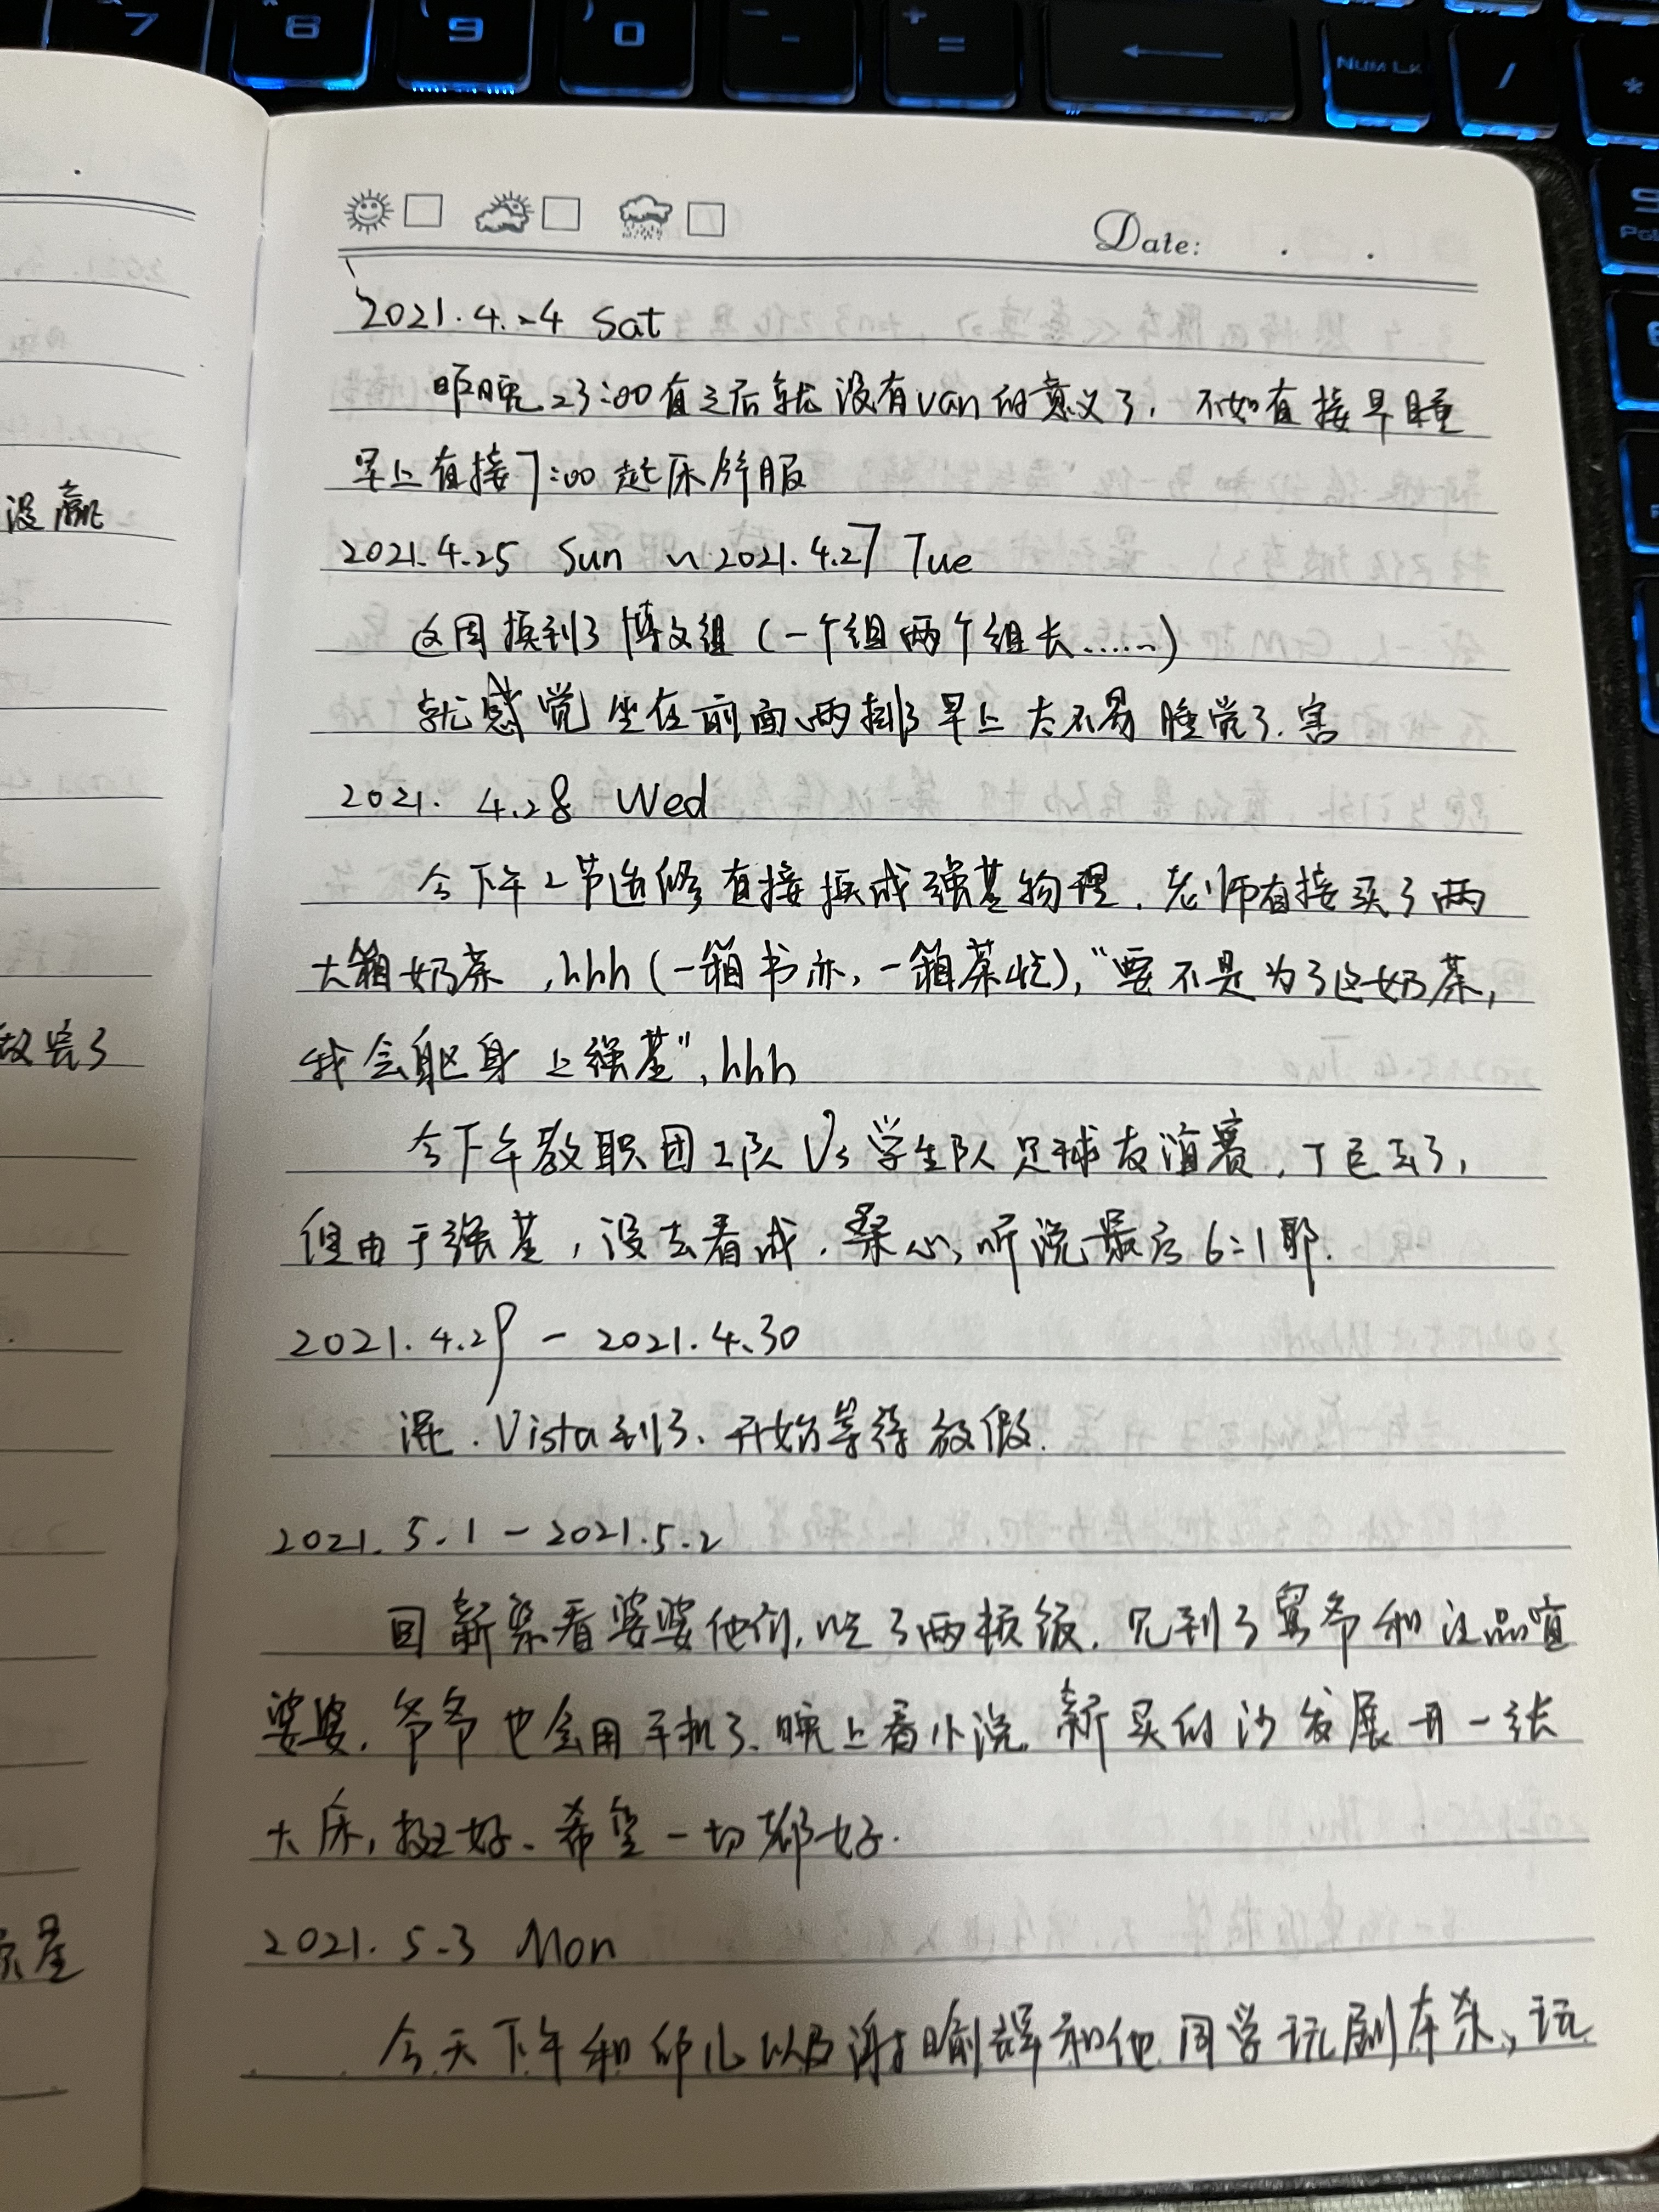 7 8 9 0 - + = ← NUM LK / *
没赢
做完了
Date: . .
2021.4.24 Sat
昨晚23:00有之后就没有van的意义了，不如直接早睡
早上直接7:00起床舒服
2021.4.25 Sun ~ 2021.4.27 Tue
这周换到了博文组（一个组两个组长……）
就感觉坐在前面两排了早上太不易睡觉了.害
2021. 4.28 Wed
今下午2节选修直接换成强基物理.老师直接买了两
大箱奶茶,hhh(一箱书亦,一箱茶忙),"要不是为了这奶茶,
我会躯身上强基",hhh
今下午教职团工队Vs学生队足球友谊赛,丁巨去了,
但由于强基,没去看成.桑心,听说最后6:1耶.
2021.4.29 - 2021.4.30
混.Vista到了、开始等待放假.
2021.5.1 - 2021.5.2
回新集看婆婆他们,吃了两顿饭.见到了爷和汪品宣
婆婆.爷爷也会用手机了、晚上看小说.新买的沙发展开一张
大床,挺好、希望一切都好.
2021.5.3 Mon
今天下午和以及谢瑜辉和他同学玩剧本杀,玩